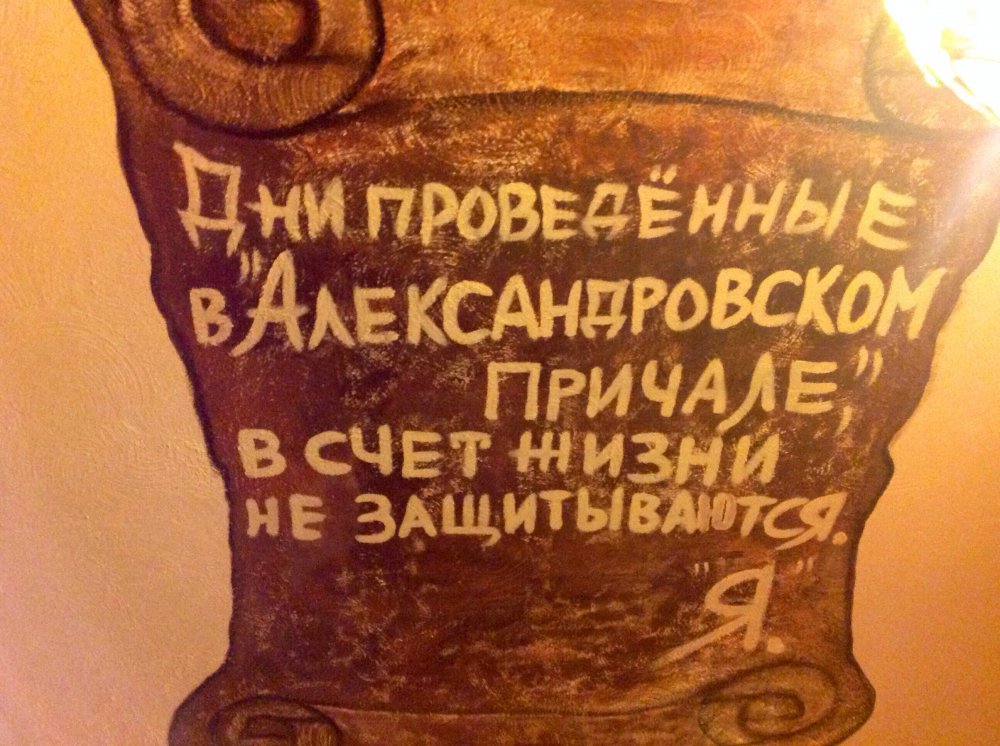 Дни проведённые
в "Александровском
причале,"
в счет жизни
не защитываются.
"Я."